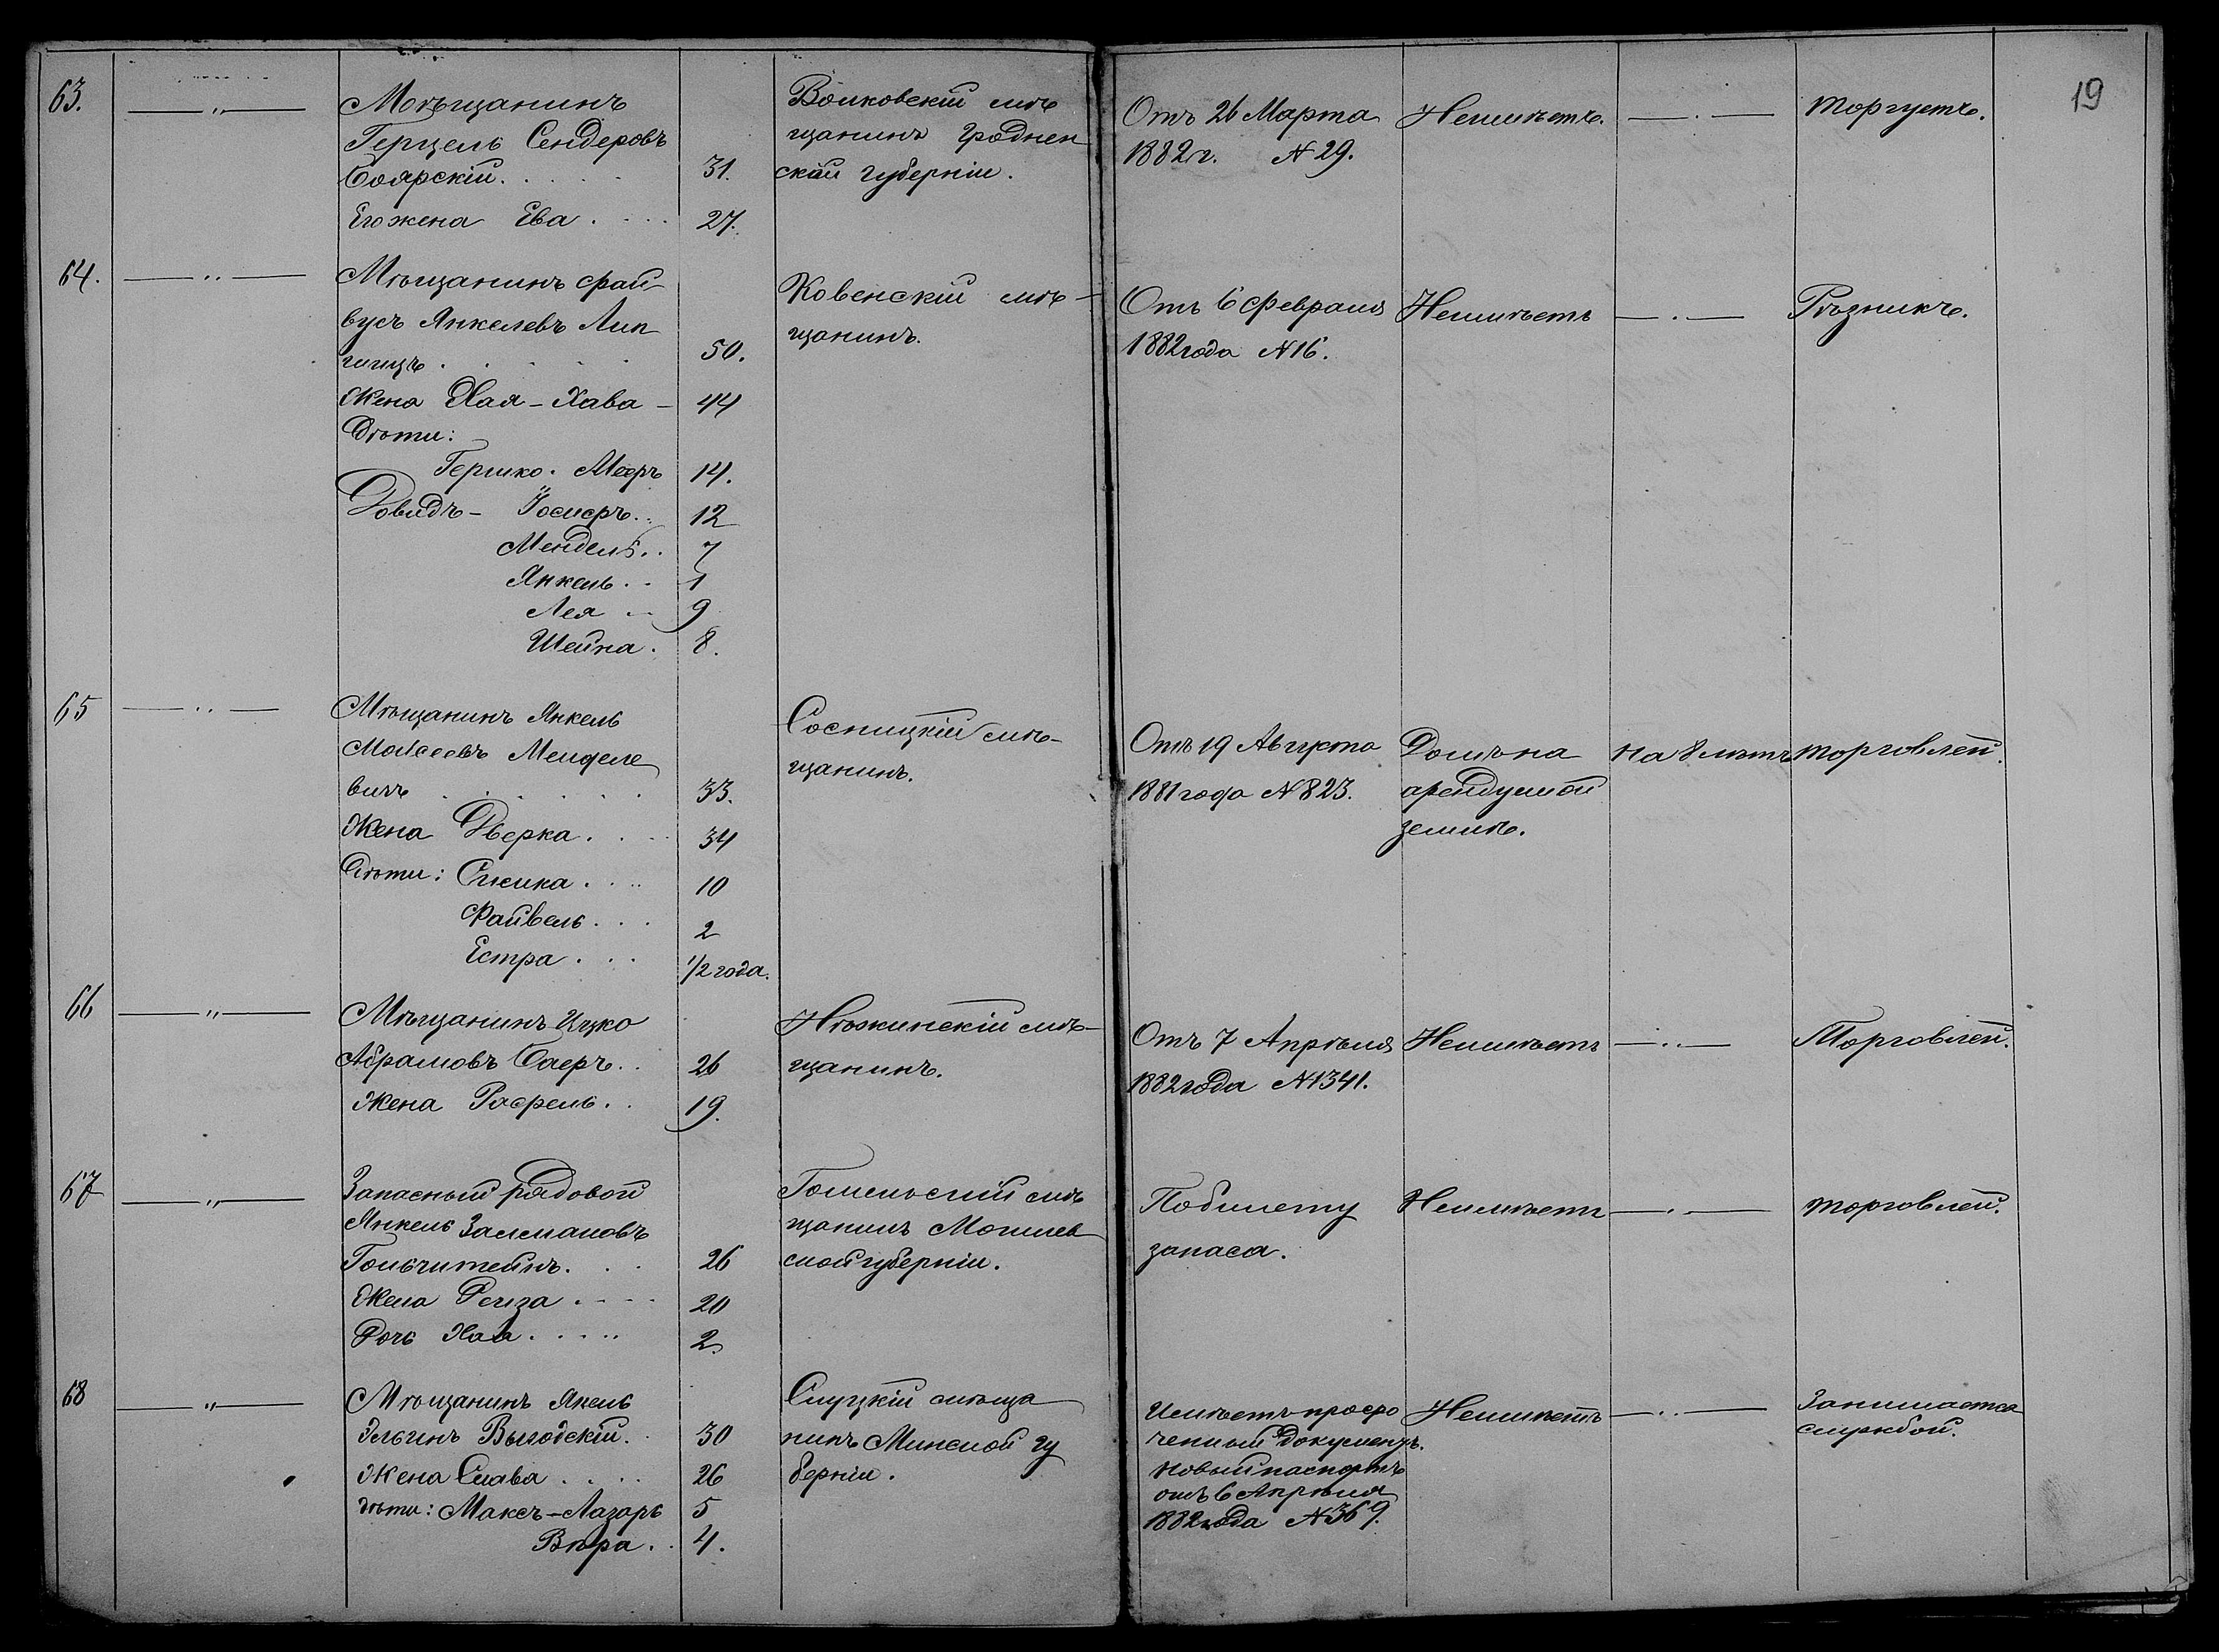 19
63.
— „ —
Мѣщанинъ
Герцель Сендеровъ
Боярскій . . . . 31.
Его жена Ева . . . . 27.
Волковскій мѣ
щанинъ Гроднен
ской губерніи.
Отъ 26 Марта
1882 г. № 29.
Неимѣетъ.
— . —
торгуетъ.
64.
— „ —
Мѣщанинъ Фай-
вусъ Янкелевъ Лип
шицъ . . . . 50.
Жена Хая - Хава - 44
Дѣти:
Гершко. Мееръ 14.
Довидъ - Іосифъ . . 12
Мендель . . 7
Янкель . . 1
Лея . . 9
Шейна . 8.
Ковенскій мѣ-
щанинъ.
Отъ 6 Февраля
1882 года № 16.
Неимѣетъ
— . —
Рѣзникъ.
65
— „ —
Мѣщанинъ Янкель
Моисеевъ Менделе
вичъ . . . . . . 33.
Жена Дверка . . . . 34
Дѣти: Симка . . . . 10
Файвель . . . 2
Естра . . . 1/2 года.
Сосницкій мѣ-
щанинъ.
Отъ 19 Августа
1881 года № 823.
Домъ на
арендуемой
землѣ.
на 8 лѣтъ
торговлей.
66
— „ —
Мѣщанинъ Ицко
Абрамовъ Баеръ . . 26
Жена Рафель . . 19.
Нѣжинскій мѣ-
щанинъ.
Отъ 7 Апрѣля
1882 года № 1341.
Неимѣетъ
— „ —
Торговлей.
67
— „ —
Запасный рядовой
Янкель Залмановъ
Гольштейнъ. . . 26
Жена Рейза . . . . 20
Дочь Хая . . . . . 2
Гомельскій мѣ
щанинъ Могилев
ской губерніи.
По билету
запаса.
Неимѣетъ
— . —
торговлей.
68
— „ —
Мѣщанинъ Якель
Эльгинъ Выгодскій. . 30
Жена Слава . . . . 26
дѣти: Максъ-Лазарь 5
Вѣра . . 4.
Слуцкій мѣща
нинъ Минской гу
берніи.
Имѣетъ просро
ченный документъ.
Новый паспортъ
отъ 6 Апрѣля
1882 года № 369.
Неимѣетъ
— „ —
Занимается
службой.